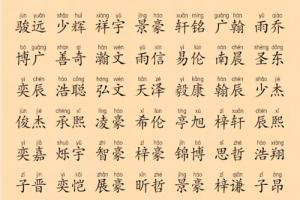 jùn yuǎn shào huī xiáng yǔ jǐng háo xuān míng guǎng hàn yǔ qiáo
骏远 少辉 祥宇 景豪 轩铭 广翰 雨乔
bó guǎng shàn qí hàn wén yǔ xìn yì lún nán chén shèng dōng
博广 善奇 瀚文 雨信 易伦 南晨 圣东
yì chén hào cōng hóng wén tiān zé yì kāng hàn chén shào jié
奕辰 浩聪 弘文 天泽 毅康 翰辰 少杰
jùn jié chéng xī líng háo xī lún tíng xù zǐ xuān chén xī
俊杰 承熙 凌豪 希伦 亭旭 梓轩 辰熙
yì jiā shuò yǔ zhì háo zǐ háo jǐn bó sī zhé hào xiáng
奕嘉 烁宇 智豪 梓豪 锦博 思哲 浩翔
zǐ jìn yì kǎi zhǎn háo xīn zhé jǐng háo zǐ qiān zǐ áng
子晋 奕恺 展豪 昕哲 景豪 梓谦 子昂